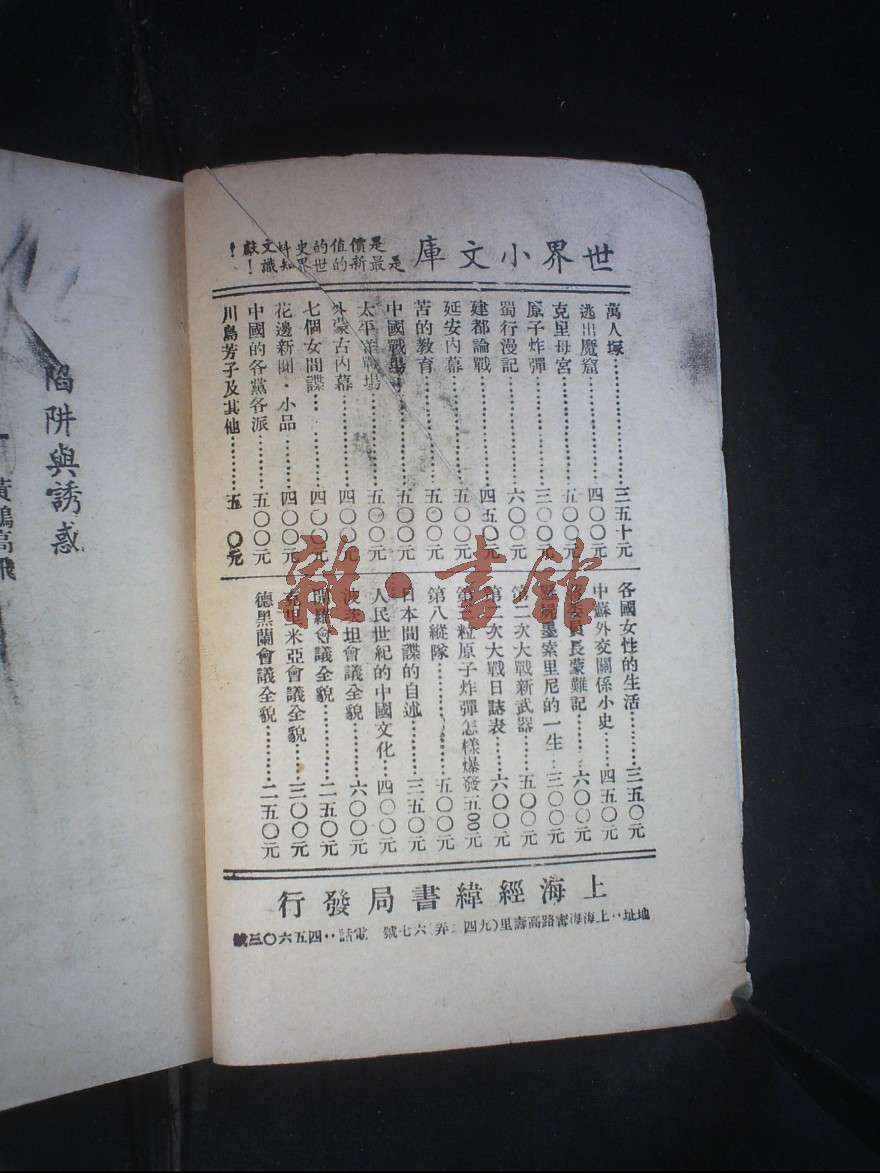 世界小文庫
是價值的史料文獻！
是最新的世界知識！
萬人塚…………三五十元
逃出魔窟…………四〇〇元
克里母宮…………五〇〇元
原子炸彈…………三〇〇元
蜀行漫記…………六〇〇元
建都論戰…………四五〇元
延安內幕…………五〇〇元
苦的教育…………五〇〇元
中國戰場…………五〇〇元
太平洋戰場…………五〇〇元
外蒙古內幕…………四〇〇元
七個女間諜…………四〇〇元
花邊新聞·小品…………四〇〇元
中國的各黨各派…………五〇〇元
川島芳子及其他…………五 〇元
各國女性的生活…………三五〇元
中蘇外交關係小史…………四五〇元
委員長蒙難記…………六〇〇元
墨索里尼的一生…………三〇〇元
第二次大戰新武器…………五〇〇元
第二次大戰日誌表…………六〇〇元
第三粒原子炸彈怎樣爆發五〇〇元
第八縱隊…………五〇〇元
日本間諜的自述…………三五〇元
人民世紀的中國文化…………四〇〇元
波茨坦會議全貌…………六〇〇元
開羅會議全貌…………二五〇元
克里米亞會議全貌…………三〇〇元
德黑蘭會議全貌…………二五〇元
上海經緯書局發行
地址：上海海甯路高壽里(九四二弄)六七號 電話：四五六〇三號
陷阱與誘惑
黃鶴高飛
雜·書館